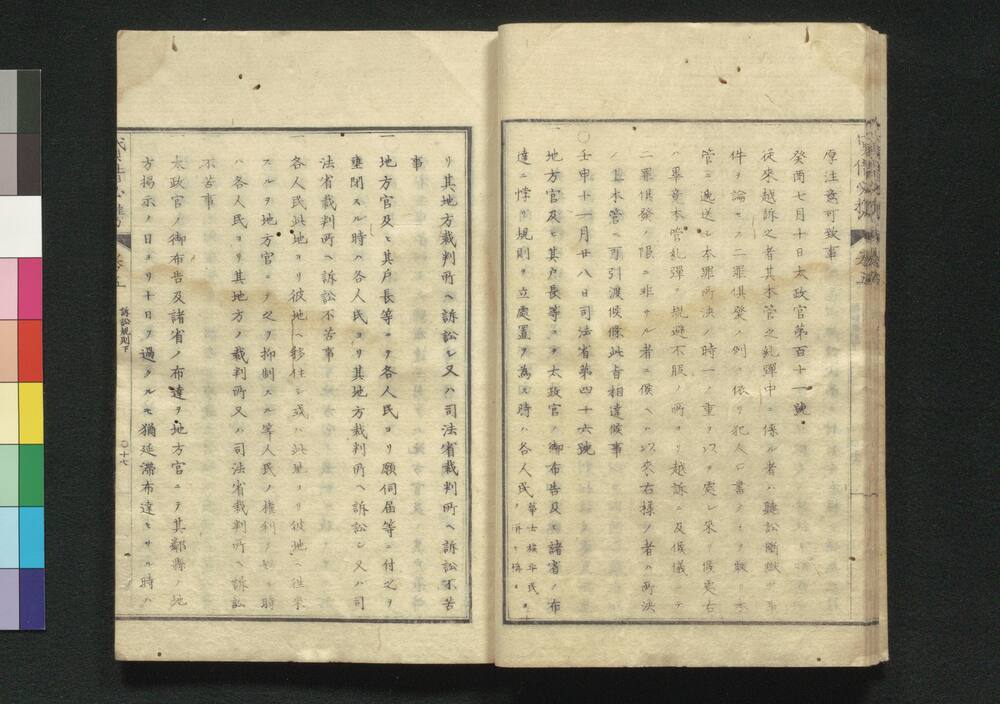 厚注意可致事
癸酉七月十日太政官第百十一號
従来越訴之者其本管之糺彈中ニ係ル者ハ聽訟斷獄
件ヲ論セス二罪俱發ノ例ニ依リ犯人口書ノミヲ取リ本
管ニ逓送シ本罪所決ノ時一ノ重ヲ以テ處シ来リ候處右
ハ畢竟本管糺彈ヲ規避不服ノ所ヨリ越訴ニ及候儀ニテ
二罪俱發ノ限ニ非サル者ニ候ヘハ以来右様ノ者ハ所決
ノ上本管ヘ可引渡候條此旨相達候事
〇壬申十一月廿八日司法省第四十六號
一地方官及ヒ其戸長等ニテ太政官ノ御布告及ヒ諸省ノ布
達ニ悖リ規則ヲ立處置ヲ為ス時ハ各人民華士族平民ノ併セ稱ヨ
リ其地方裁判所ヘ訴訟シ又ハ司法省裁判所ヘ訴訟不苦
事
一地方官及ヒ其戸長等ニテ各人民ヨリ願伺届等ニ付之ヲ
壅閉スル時ハ各人民ヨリ其地方裁判所ヘ訴訟シ又ハ司
法省裁判所ヘ訴訟不苦事
一各人民此地ヨリ彼地ヘ移住シ或ハ此地ヨリ彼地ヘ往来
スルヲ地方官ニテ之ヲ抑制スル等人民ノ權利ヲ妨ル時
ハ各人民ヨリ其地方ノ裁判所又ハ司法省裁判所ヘ訴訟
不苦事
一太政官ノ御布告及諸省ノ布達ヲ地方官ニテ其鄰縣ノ地
方揭示ノ日ヨリ十日ヲ過クルモ猶延滯布達セサル時ハ
訴訟規則下
〇十七